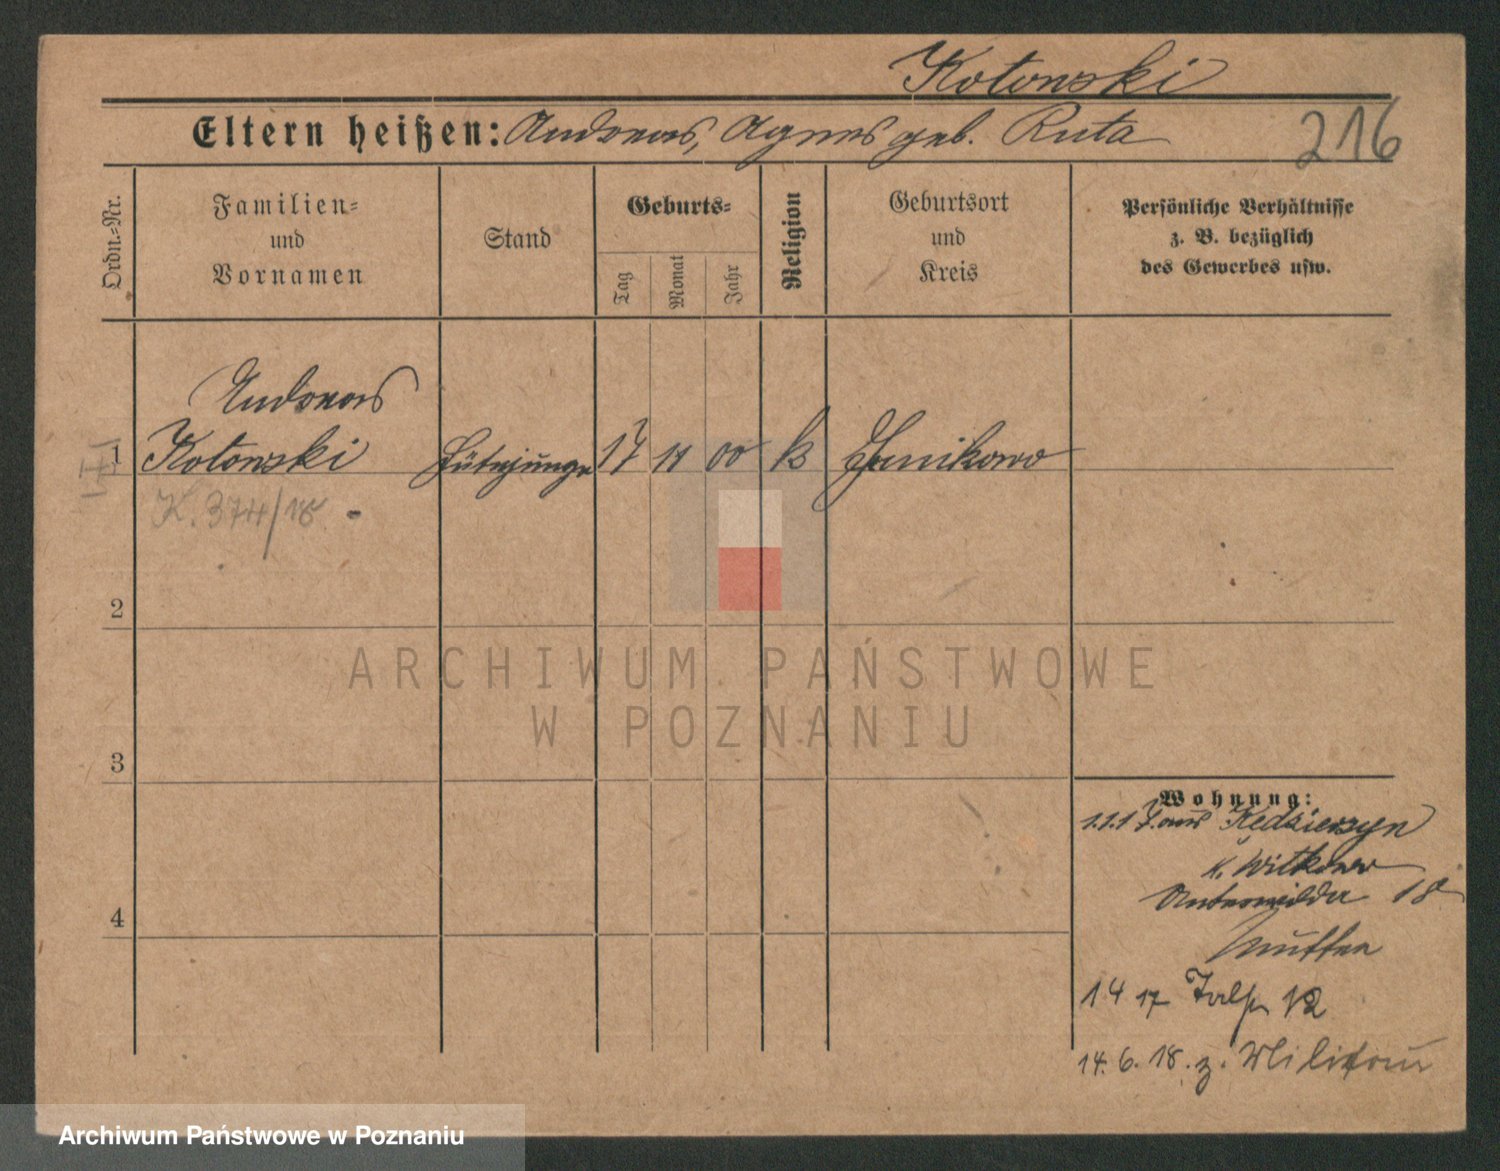 Kotowski
Eltern heißen: Andreas, Agnes geb. Ruta
216
Ordn.=Nr.
Familien=
und
Vornamen
Stand
Geburts=
Tag
Monat
Jahr
Religion
Geburtsort
und
Kreis
Persönliche Verhältnisse
z. B. bezüglich
des Gewerbes usw.
Andreas
1 Kotowski Hütejunge 17 11 00 k Janikowo
K. 374/18
2
3
4
Wohnung:
1.1.17. aus Kedzierzyn
K. Witkowo
18
14 17 12
14. 6. 18. z. Militär
ARCHIWUM PAŃSTWOWE
W POZNANIU
Archiwum Państwowe w Poznaniu